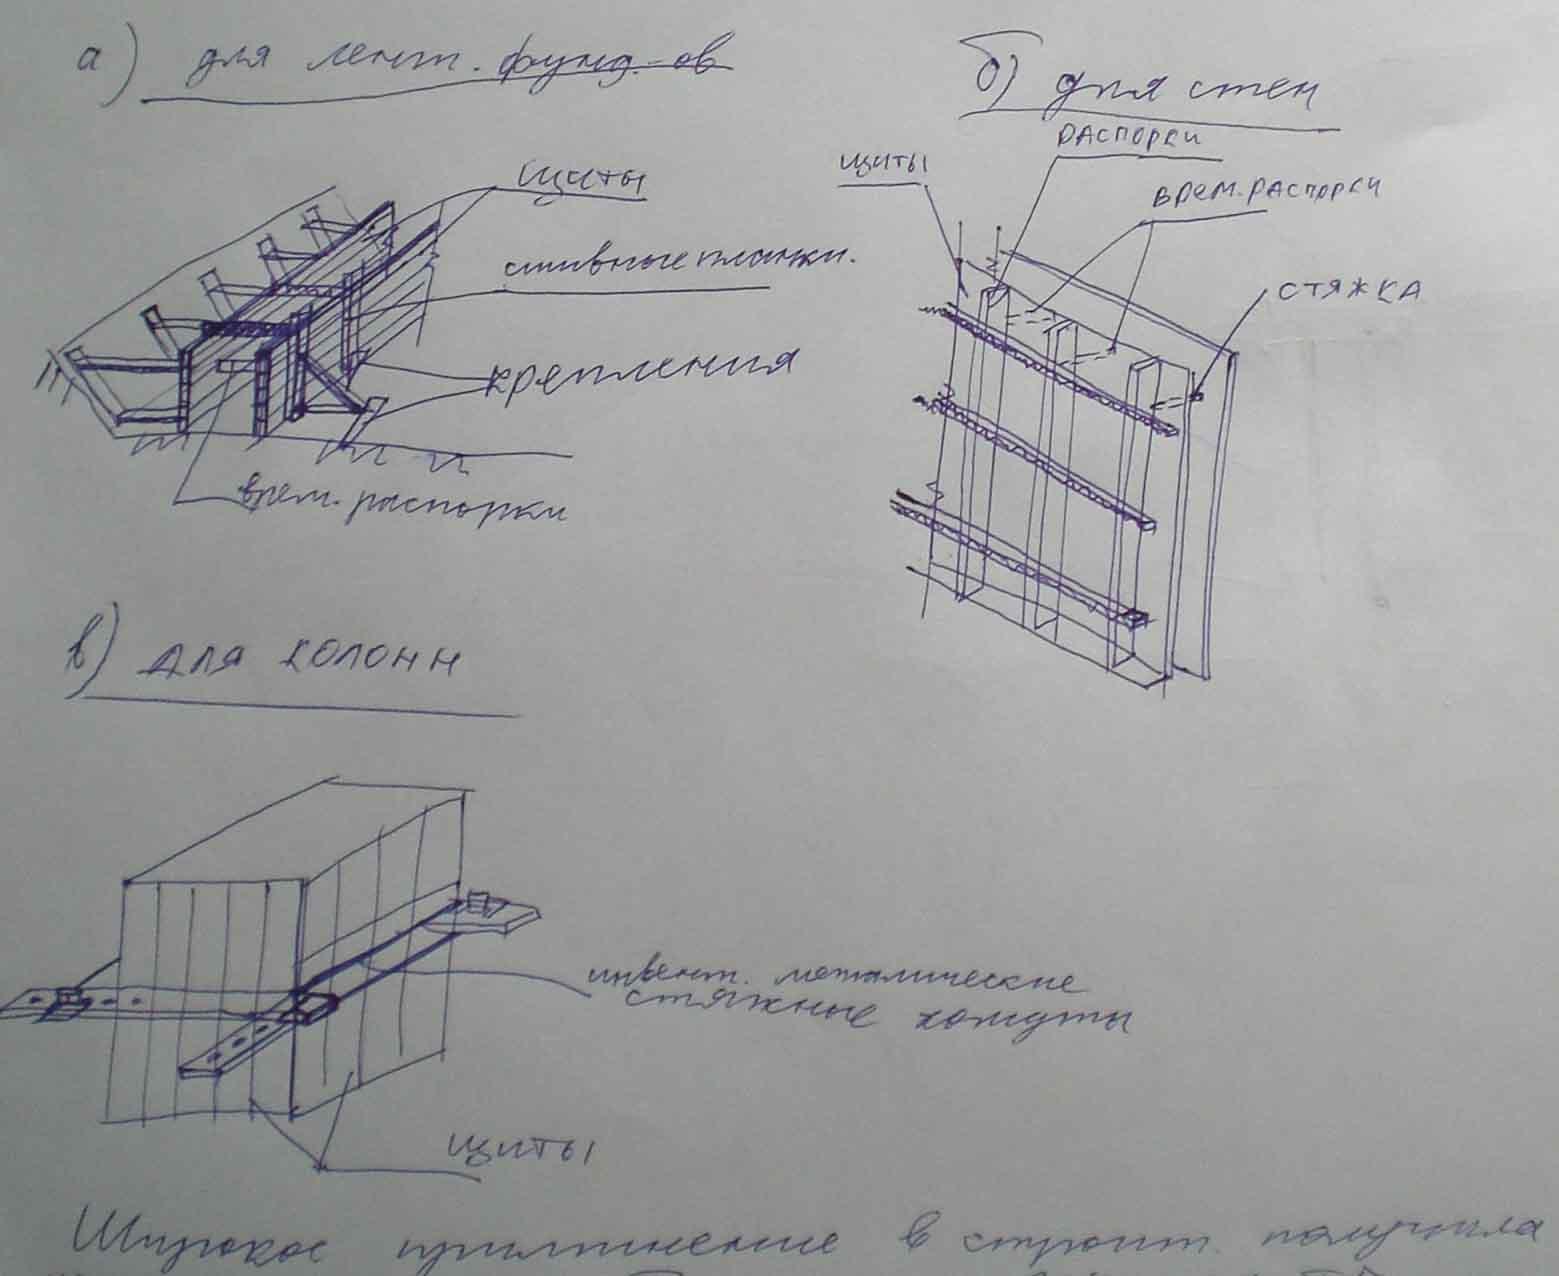 а) для лент. фунд-ов
щиты
сшивные планки.
крепления
врем. распорки
б) для стен
щиты
распорки
врем. распорки
стяжка
в) для колонн
инвент. металические
стяжные хомуты
щиты
Широкое применение в строит. получила